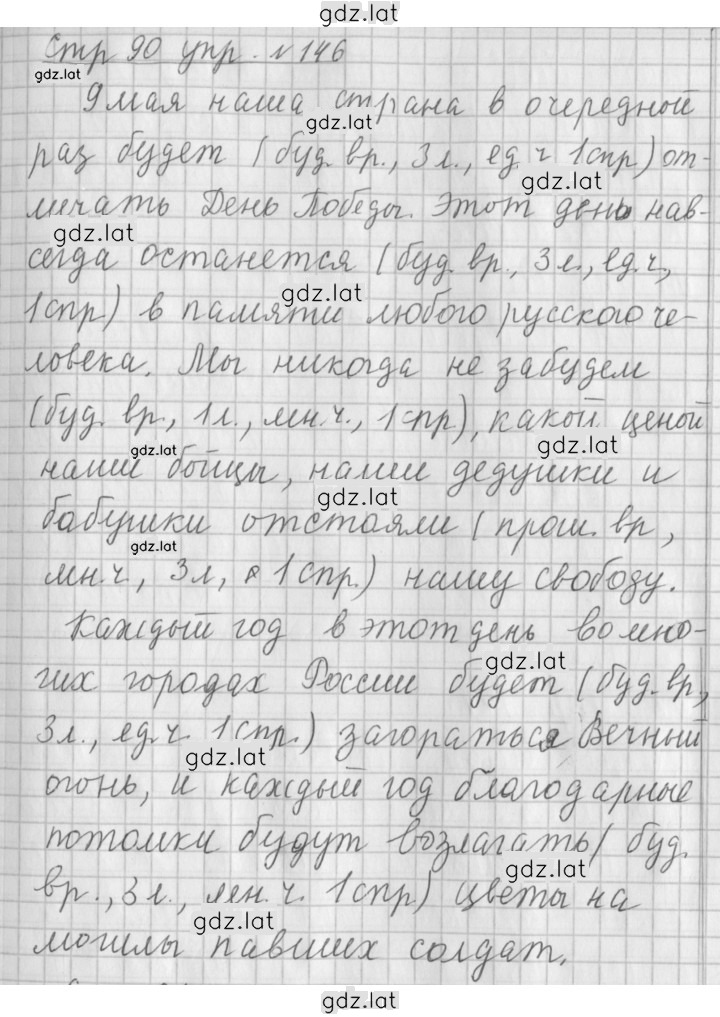 gdz.lat
Стр 90 упр. №146
gdz.lat
9 мая наша страна в очередной
gdz.lat
раз будет (буд. вр., 3л., ед ч 1спр) от-
gdz.lat
мечать День Победы. Этот день нав-
gdz.lat
сегда останется (буд. вр., 3л., ед.ч.,
gdz.lat
1спр) в памяти любого русского че-
ловека. Мы никогда не забудем
(буд. вр., 1л., мн.ч., 1спр), какой ценой
gdz.lat
gdz.lat
наши бойцы, наши дедушки и
gdz.lat
бабушки отстояли (прош. вр,
gdz.lat
мн.ч, 3л, 1спр.) нашу свободу.
Каждый год в этот день во мно-
gdz.lat
гих городах России будет (буд. вр,
3л., ед.ч. 1спр.) загораться Вечный
gdz.lat
огонь, и каждый год благодарные
потомки будут возлагать (буд.
gdz.lat
вр., 3л., мн. ч. 1спр) цветы на
gdz.lat
могилы павших солдат.
gdz.lat